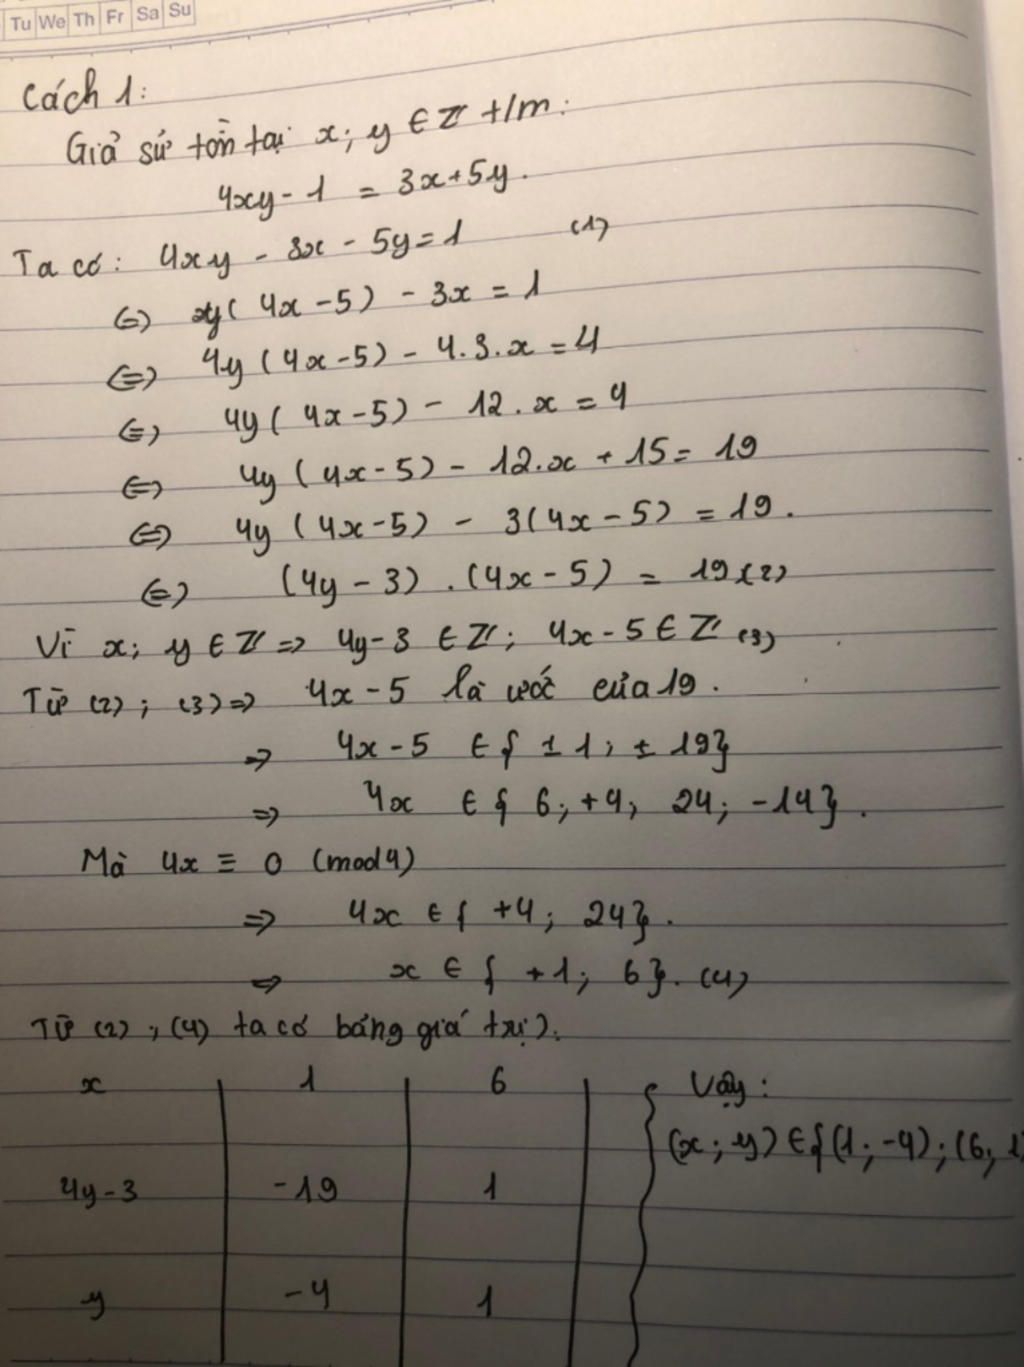 Tu We Th Fr Sa Su
Cách 1:
Giả sử tồn tại x; y ∈ Z t/m:
4xy - 1 = 3x + 5y.
Ta có: 4xy - 3x - 5y = 1 (1)
(=) y( 4x - 5) - 3x = 1
(=) 4y ( 4x - 5) - 4.3.x = 4
(=) 4y ( 4x - 5) - 12.x = 4
(=) 4y ( 4x - 5) - 12.x + 15 = 19
(=) 4y ( 4x - 5) - 3(4x - 5) = 19.
(=) (4y - 3).(4x - 5) = 19 (2)
Vì x; y ∈ Z => 4y - 3 ∈ Z; 4x - 5 ∈ Z (3)
Từ (2); (3) => 4x - 5 là ước của 19.
=> 4x - 5 ∈ { ±1; ±19}
=> 4x ∈ { 6; +4; 24; -14}.
Mà 4x ≡ 0 (mod 4)
=> 4x ∈ { +4; 24}.
=> x ∈ { +1; 6}. (4)
Từ (2); (4) ta có bảng giá trị).
x 1 6
4y - 3 -19 1
y -4 1
Vậy:
(x; y) ∈ {(1; -4); (6; 1